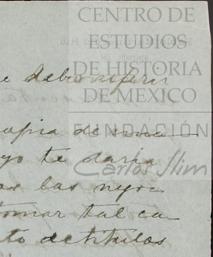 CENTRO DE
ESTUDIOS
DE HISTORIA
DE MÉXICO
FUNDACIÓN
Carlos Slim
e debo
opia de una
yo te daría
las
tomar tal ca
to de títulos